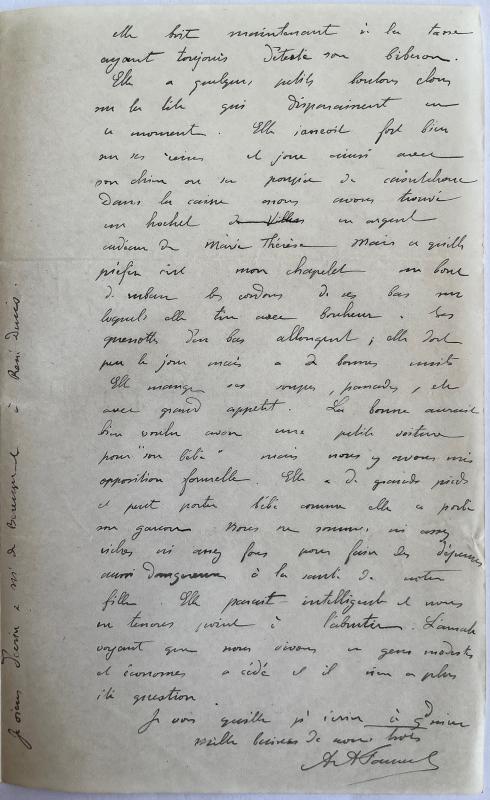 elle boit maintenant à la tasse
ayant toujours détesté son biberon.
Elle a quelques petits boutons clous
sur la tête qui disparaissent en
ce moment. Elle s'asseoit fort bien
sur ses reins et joue ainsi avec
son chien ou sa poupée de caoutchouc
Dans la caisse nous avons trouvé
un hochet en argent
cadeau de Marie Thérèse Mais ce qu'elle
préfère c'est mon chapelet un bout
de ruban les cordons de ses bas sur
lesquels elle tire avec bonheur. Les
quenottes d'en bas allongent ; elle dort
peu le jour mais a de bonnes nuits
Elle mange ses soupes, panades, etc
avec grand appetit. La bonne aurait
bien voulu avoir une petite voiture
pour "son bébé" mais nous y avons mis
opposition formelle. Elle a de grands pieds
et peut porter bébé comme elle a porté
son garçon Nous ne sommes ni assez
riches ni assez fous pour faire des dépenses
aussi dangereuses à la santé de notre
fille. Elle parait intelligente et nous
ne tenons point à l'abrutir. L'amah
voyant que nous vivons en gens modestes
et économes a cédé et il n'en a plus
été question.
Je vous quitte j'écris à gd mère
mille baisers de nous trois
Je viens d'écrire à René